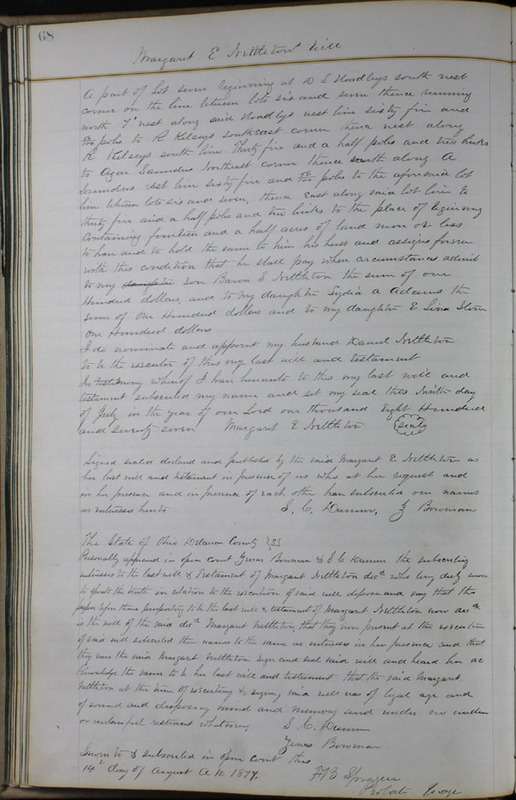 68
Margaret E Nettleton Will
A part of Lot seven beginning at D S Hoadleys south west
corner on the line between lots six and seven thence running
north 7° west along said Hoadleys west line sixty five and
poles to R Kelseys southeast corner thence west along
R Kelseys south line Thirty five and a half poles and two links
to Saunders Northeast corner thence south along A
Saunders east line sixty five and poles to the aforesaid lot
line between lots six and seven, thence East along said lot line to
thirty five and a half poles and two links to the place of beginning
Containing fourteen and a half acres of land more or less
to have and to hold the same to him his heirs and assigns forever
with this condition that he shall pay when circumstances admit
to my son E Nettleton the sum of one
Hundred dollars, and to my daughter Lydia A Adams the
sum of One Hundred dollars and to my daughter E
One Hundred dollars
I do nominate and appoint my husband Daniel Nettleton
to be the executor of this my last will and testament
In testimony whereof I have hereunto to this my last will and
testament subscribed my name and set my seal this day
of July in the year of our Lord one thousand Eight Hundred
and seventy seven Margaret E Nettleton (seal)
Signed sealed declared and published by the said Margaret E Nettleton as
her last will and testament in presence of us who at her request and
in her presence and in presence of each other have subscribed our names
as witnesses hereto S. C. Z Bowman
The State of Ohio Delaware County SS
Personally appeared in open court Zenas Bowman & S C the subscribing
witnesses to the last will & Testament of Margaret Nettleton decd who being duly sworn
to speak the truth in relation to the execution of said will depose and say that the
paper upon them purporting to be the last will & testament of Margaret Nettleton now decd
is the will of the said decd Margaret Nettleton, that they were present at the execution
of said will subscribed their names to the same as witnesses in her presence and that
they saw the said Margaret Nettleton sign and seal said will and heard her ac
knowledge the same to be her last will and testament that the said Margaret
Nettleton at the time of executing & signing said will was of legal age and
of sound and disposing mind and memory and under no undue
or unlawful restraint whatsoever. S. C.
Zenas Bowman
Sworn to & subscribed in open court this
14th day of August A D 1877. F B Sprague
Probate Judge